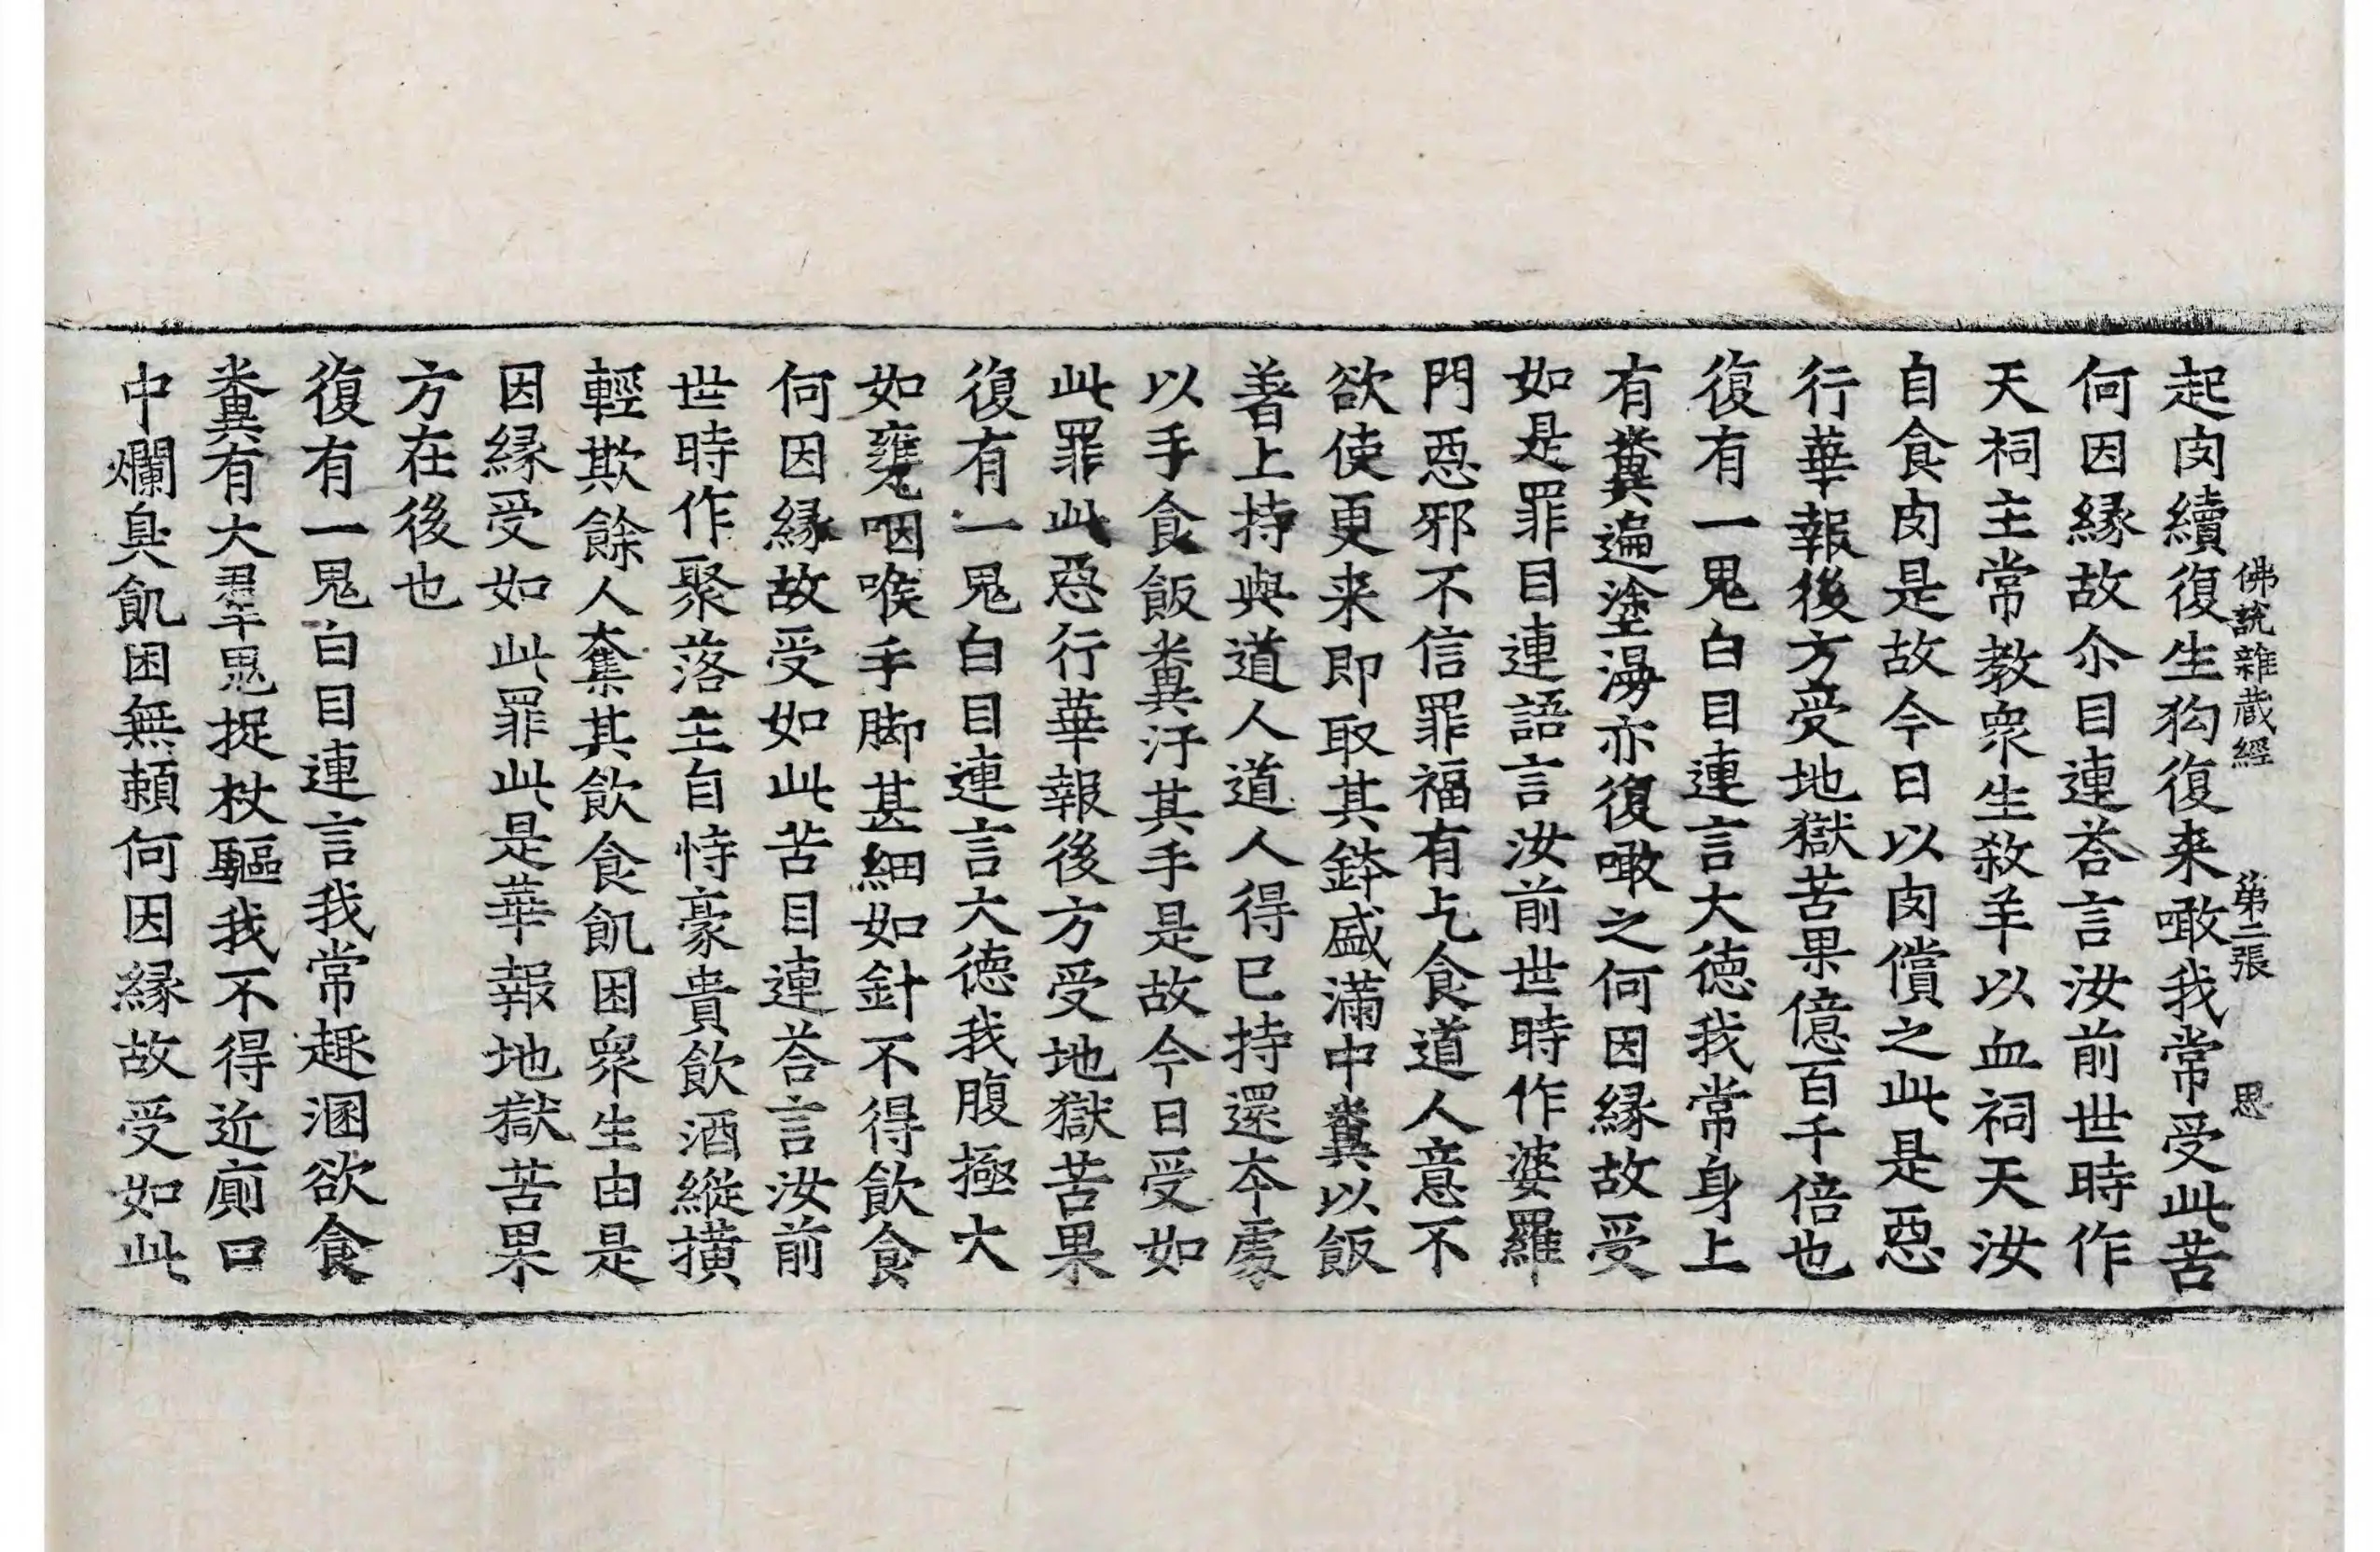 佛說雜藏經　第二張　思
起肉續復生狗復来噉我常受此苦
何因縁故尒目連荅言汝前世時作
天祠主常教衆生敘羊以血祠天汝
自食肉是故今日以肉償之此是惡
行華報後方受地獄苦果億百千倍也
復有一鬼白目連言大德我常身上
有糞遍塗漫亦復噉之何因縁故受
如是罪目連語言汝前世時作婆羅
門惡邪不信罪福有乞食道人意不
欲使更来即取其鉢盛滿中糞以飯
著上持與道人道人得已持還本處
以手食飯糞汙其手是故今日受如
此罪此惡行華報後方受地獄苦果
復有一鬼白目連言大德我腹極大
如甕咽喉手脚甚細如針不得飲食
何因縁故受如此苦目連荅言汝前
世時作聚落主自恃豪貴飲酒縱撗
輕欺餘人奪其飲食飢困衆生由是
因縁受如此罪此是華報地獄苦果
方在後也
復有一鬼白目連言我常趣溷欲食
糞有大羣鬼捉杖驅我不得近廁口
中爛臭飢困無頼何因縁故受如此